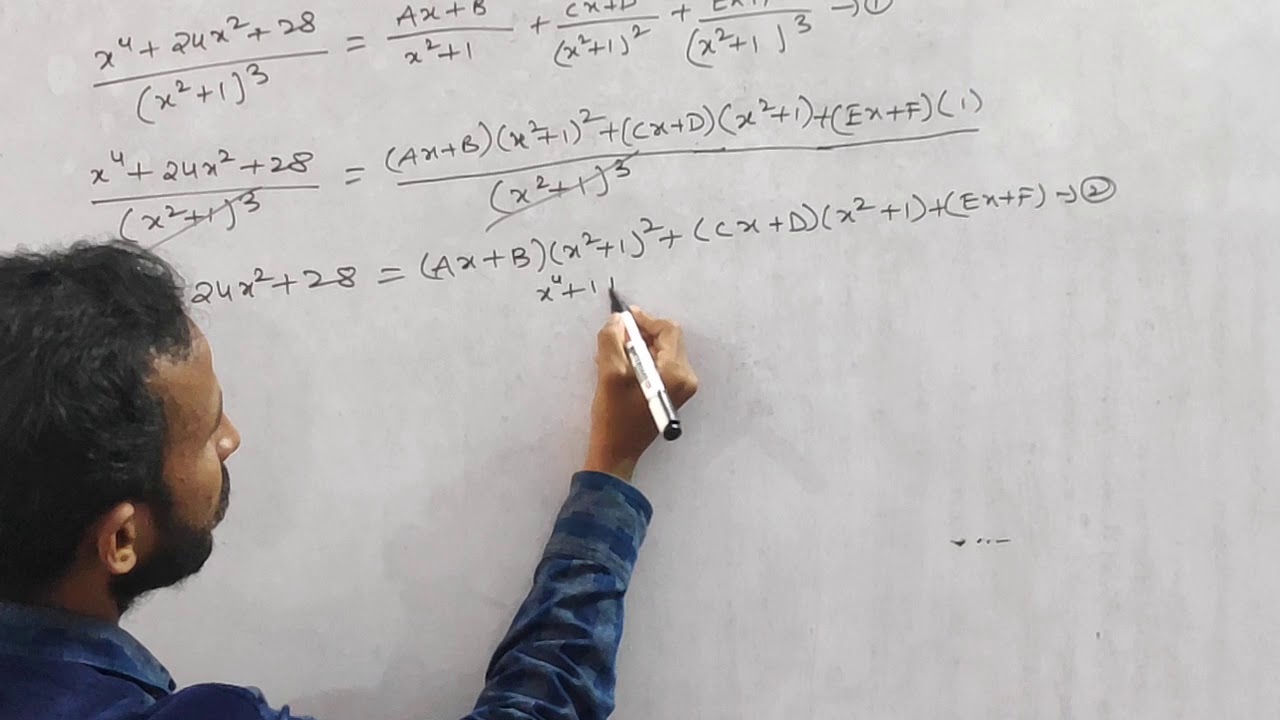 x⁴ + 24x² + 28 / (x²+1)³ = Ax+B / x²+1 + Cx+D / (x²+1)² + / (x²+1)³ → ①
x⁴ + 24x² + 28 / (x²+1)³ = (Ax+B)(x²+1)² + (Cx+D)(x²+1) + (Ex+F)(1) / (x²+1)³
24x² + 28 = (Ax+B)(x²+1)² + (Cx+D)(x²+1) + (Ex+F) → ②
x⁴+1